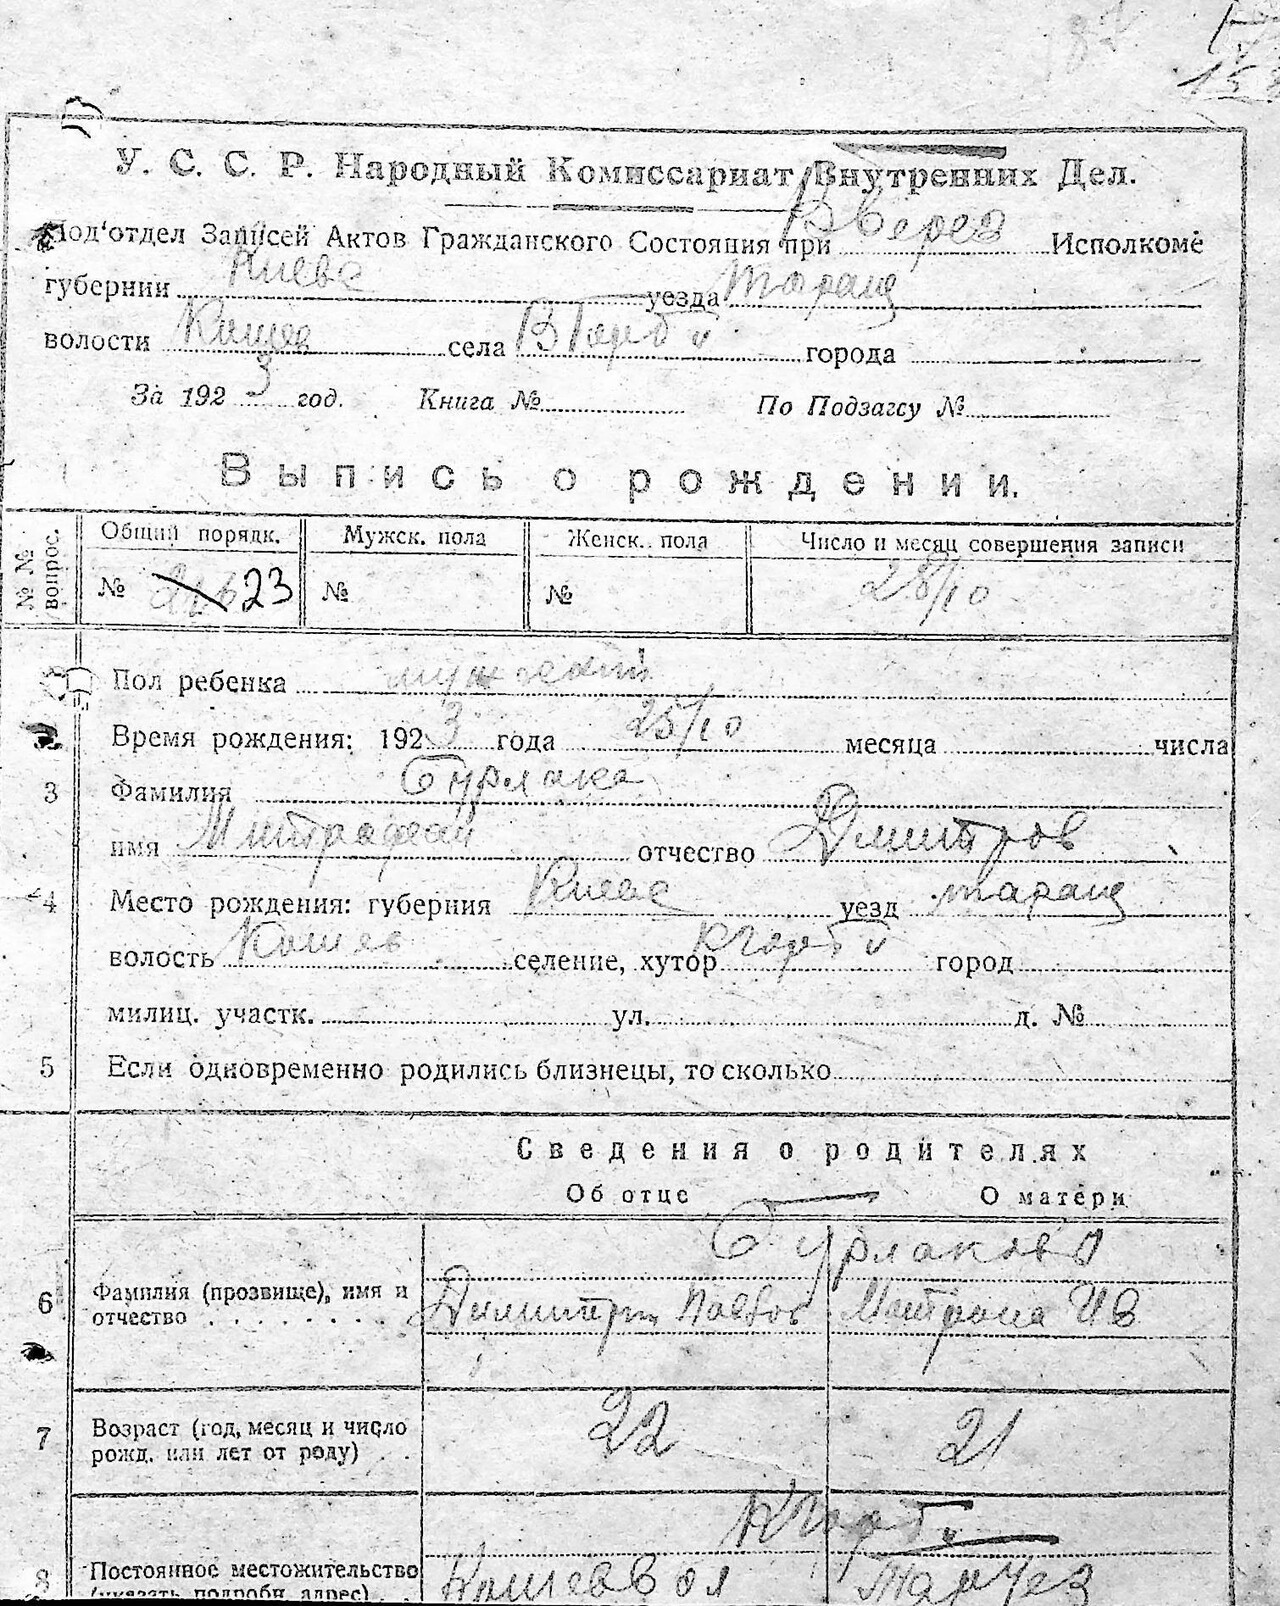 У. С. С. Р. Народный Комиссариат Внутренних Дел.
Под'отдел Записей Актов Гражданского Состояния при Исполкоме
губернии Киевс уезда Таращ
волости Кошев села города
За 1923 год. Книга № По Подзагсу №
Выпись о рождении.
№ № вопрос. Общий порядк. Мужск. пола Женск. пола Число и месяц совершения записи
№ 23 № № 28/10
Пол ребенка мужской
Время рождения: 1923 года 25/10 месяца числа
3 Фамилия Бурлака
имя Митрофан отчество Дмитров
4 Место рождения: губерния Киевс уезд таращ
волость Кошев селение, хутор город
милиц. участк. ул. д. №
5 Если одновременно родились близнецы, то сколько
Сведения о родителях
Об отце О матери
Бурлакови
6 Фамилия (прозвище), имя и
отчество Димитри Павлов Матрона Ив
7 Возраст (год, месяц и число
рожд. или лет от роду) 22 21
8 Постоянное местожительство
(указать подробн. адрес)